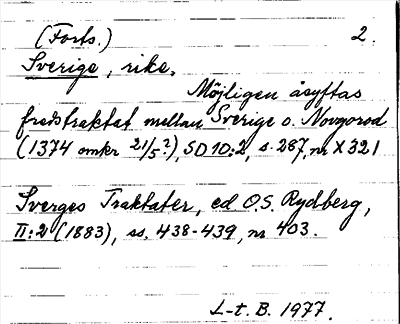 (Forts.) 2.
Sverige, rike.
Möjligen åsyftas
fredstraktat mellan Sverige o. Novgorod
(1374 omkr 21/5?), SD 10:2, s. 287, nr X 321
Sverges Traktater, ed O.S. Rydberg,
II:2 (1883), ss. 438-439, nr 403.
L-t. B. 1977.